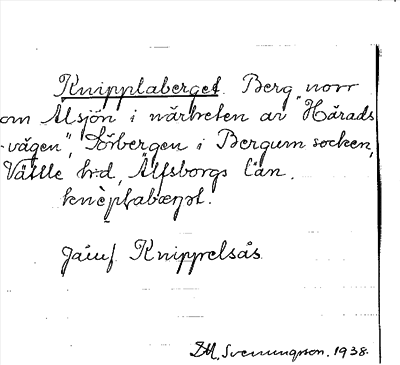 Knipplaberget. Berg norr
om Alsjön i närheten av "Härads
-vägen", Dörbergen i Bergum socken,
Vättle hd, Älfsborgs län.
Jämf Knippelsås
D.M. Svenungsson. 1938.